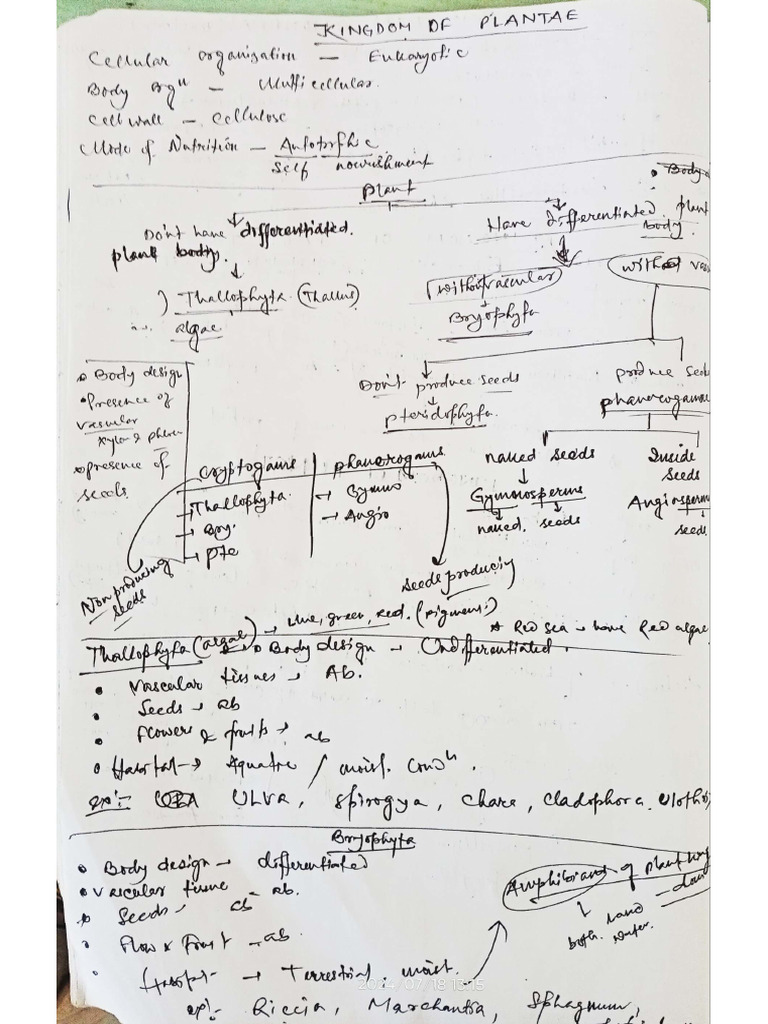 KINGDOM OF PLANTAE
Cellular organization — Eukaryotic
Body orgn — Multicellular.
Cell wall — Cellulose
Mode of Nutrition — Autotrophic
Self nourishment
Plant
Body
Don't have differentiated
plant body.
Have differentiated plant
Body.
1) Thallophyta (Thallus)
algae
without vascular
Bryophyta
with vas
• Body design
• Presence of
vascular
xylem & phloem
• presence of
seeds
Don't produce seeds
pteridophyta.
produce seeds
phanerogamae
Cryptogams | phanerogams
→ Thallophyta → Gymno
→ Bry. → Angio
→ pte
Non producing
seeds
Seeds producing
naked seeds
Gymnosperms
naked seeds
Inside
Seeds
Angiosperm
seeds
Thallophyta (algae) → blue, green, red. (pigments)
* Red sea → have Red algae
• Body design → Undifferentiated.
• Vascular tissues → Ab.
• Seeds → ab
• Flowers & fruits → ab
• Habitat → Aquatic / moist. Condn.
ex:- ULVA, Spirogya, chara, cladophora, Ulothri
Bryophyta
• Body design → differentiated
• Vascular tissue — ab.
• Seeds → ab
• Flow x Fruit — ab.
• Habitat → Terrestrial. moist.
Amphibians of plant king
dom
both land
water.
ex:- Riccia, Marchantia, Sphagnum,
2024/07/18 13:15